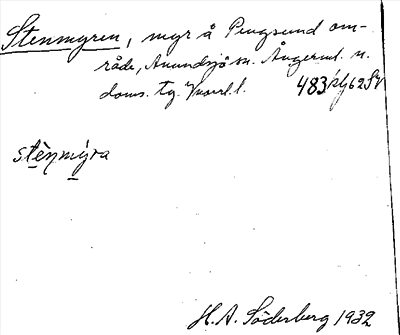 Stenmyren, myr å Pengsund om-
råde, Anundsjö sn. Ångerml. n.
doms. tg. Norrl. l. 483 62SV
stènmýra
H.A. Söderberg 1932